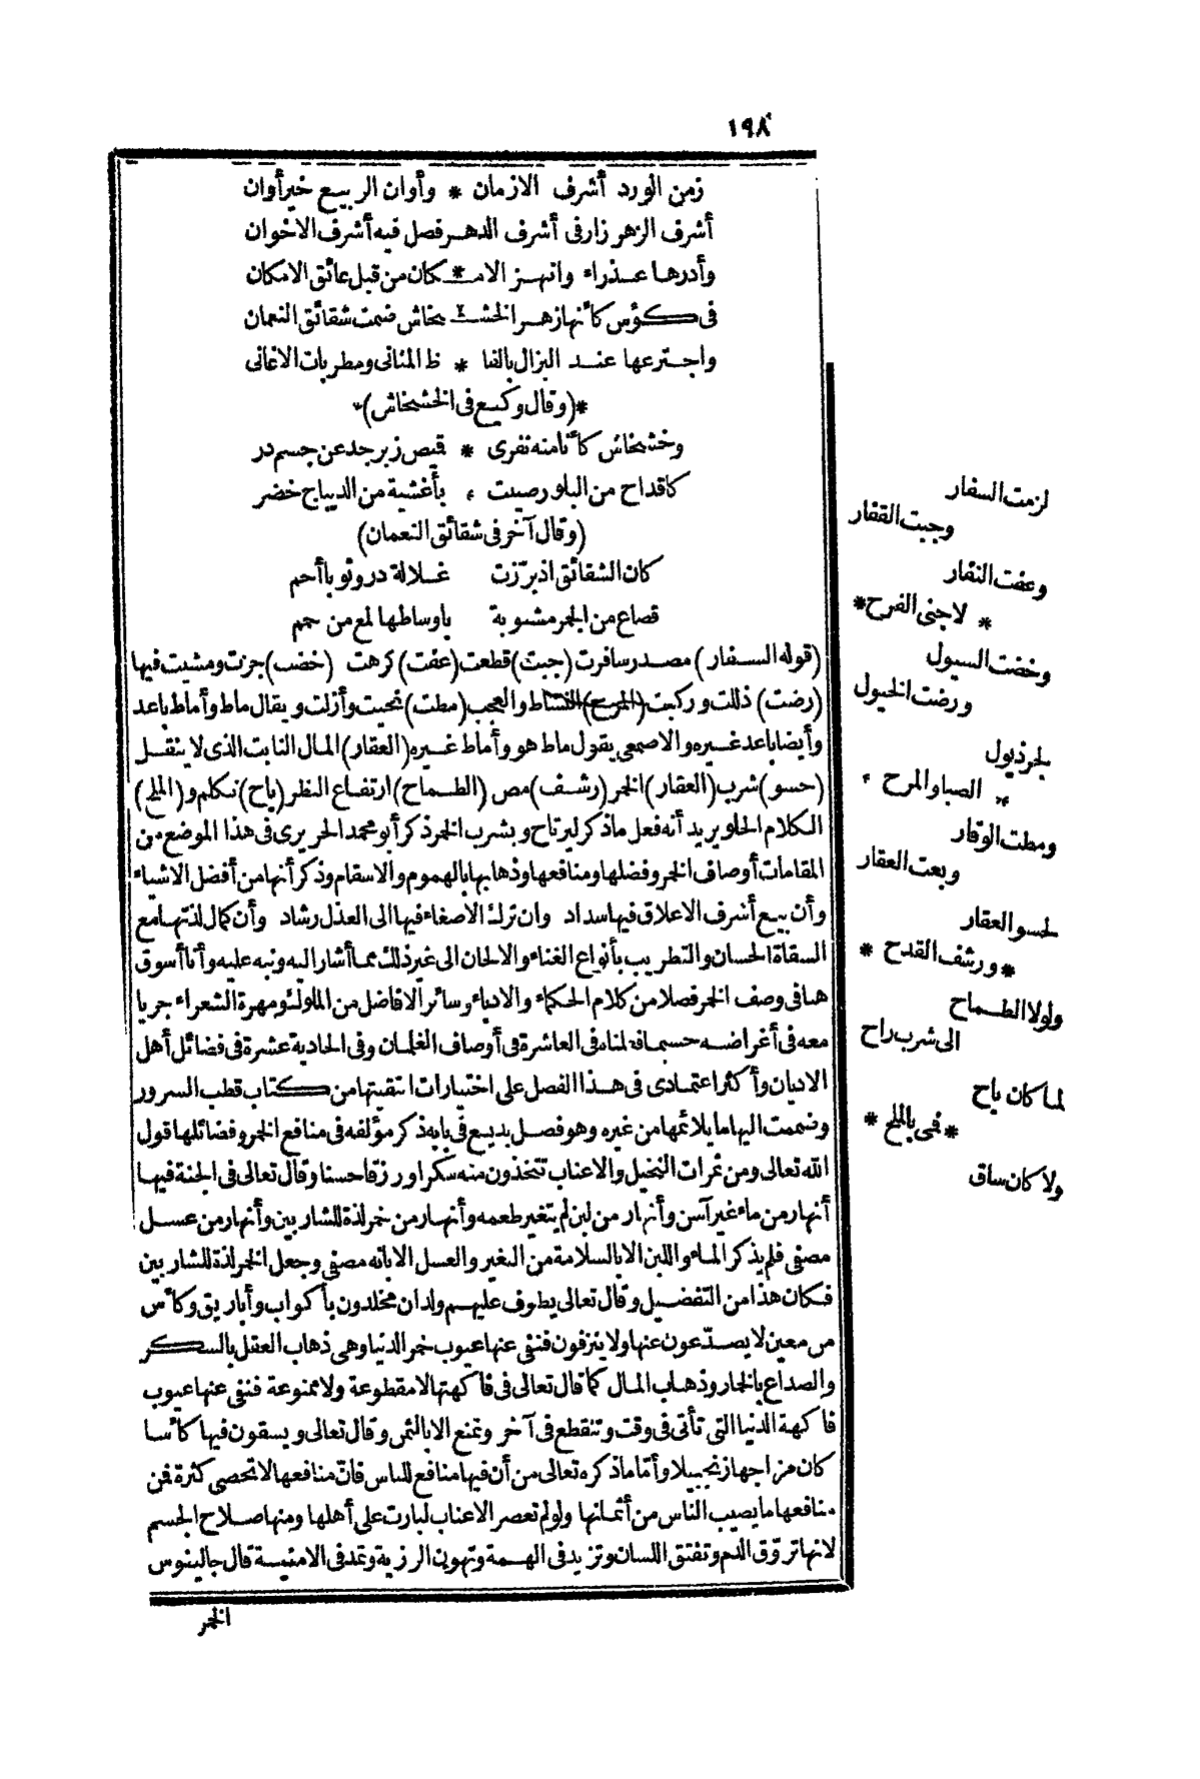 ١٩٨
زمن الورد أشرف الازمان * وأوان الربيع خير أوان
أشرف الزهر زار فى أشرف الدهر فصل فيه أشرف الاخوان
وأدرها عذراء وانهز الامـ * كان من قبل عائق الامكان
فى كؤس كأنها زهر الخشـ * خاش ضمت شقائق النعمان
واجترعها عند البزال بالفا * ظ المثانى ومطربات الاغانى
*(وقال وكيع فى الخشخاش)*
وخشخاش كأنا منه نفرى * قيص زبرجد عن جسم در
كاقداح من البلور صيت * بأغشية من الديباج خضر
(وقال آخر فى شقائق النعمان)
كان الشقائق اذ برّزت غلالة در وثوبا أحم
قصاع من الجر مشوبة باوساطها لمع من حمم
(قوله السفار) مصدر سافرت (جبت) قطعت (عفت) كرهت (خضب) جزت ومشيت فيها
(رضت) ذللت وركبت (المرح) النشاط والعجب (مطت) نحيت وأزلت ويقال ماط وأماط باعد
وأيضا باعد غيره والاصمعى يقول ماط هو وأماط غيره (العقار) المال الثابت الذى لا ينقل
(حسو) شرب (العقار) الخمر (رشف) مص (الطماح) ارتفاع النظر (باح) تكلم و (الملح)
الكلام الحلو يريد أنه فعل ما ذكر ليرتاح وبشرب الخمر ذكر أبو محمد الحريرى فى هذا الموضع من
المقامات أوصاف الخمر وفضلها ومنافعها وذهابها بالهموم والاسقام وذكر أنها من أفضل الاشياء
وأن بيع أشرف الاعلاق فيها سداد وان ترك الاصغاء فيها الى العذل رشاد وأن كمال لذتها مع
السقاة الحسان والتطريب بأنواع الغناء والالحان الى غير ذلك مما أشار اليه ونبه عليه وأنا أسوق
هنا فى وصف الخمر فصلا من كلام الحكماء والادباء وسائر الافاضل من الملوك ومهرة الشعراء جريا
معه فى أغراضه حسبما فعلناه فى العاشرة فى أوصاف الغلمان وفى الحادية عشرة فى فضائل أهل
الاديان وأكثر اعتمادى فى هذا الفصل على اختيارات انتقيتها من كتاب قطب السرور
وضممت اليها ما يلائمها من غيره وهو فصل بديع فى بابه ذكر مؤلفه فى منافع الخمر وفضائلها قول
الله تعالى ومن ثمرات النخيل والاعناب تتخذون منه سكرا ورزقا حسنا وقال تعالى فى الجنة فيها
أنهار من ماء غير آسن وأنهار من لبن لم يتغير طعمه وأنهار من خمر لذة للشاربين وأنهار من عسل
مصفى فلم يذكر الماء واللبن الا بالسلامة من الغير والعسل الا بانه مصفى وجعل الخمر لذة للشاربين
فكان هذا من التفضيل وقال تعالى يطوف عليهم ولدان مخلدون بأكواب وأباريق وكأس
من معين لا يصدّعون عنها ولا ينزفون فنفى عنها عيوب خمر الدنيا وهى ذهاب العقل بالسكر
والصداع بالخمار وذهاب المال كما قال تعالى فى فاكهتها لا مقطوعة ولا ممنوعة فنفى عنها عيوب
فاكهة الدنيا التى تأتى فى وقت وتنقطع فى آخر وتمنع الا بالثمن وقال تعالى ويسقون فيها كأسا
كان مزاجها زنجبيلا وأمّا ما ذكره تعالى من أن فيها منافع للناس فانّ منافعها لا تحصى كثرة فمن
منافعها ما يصيب الناس من أثمانها ولو لم تعصر الاعناب لبارت على أهلها ومنها صلاح الجسم
لانها تروّق الدم وتفتق اللسان وتزيد فى الهمة وتهون الرزية وتمد فى الامنيسة قال جالينوس
الخمر
لزمت السفار
وجبت القفار
وعفت النفار
* لاجنى الفرح *
وخضت السيول
ورضت الخيول
لجر ذيول
* الصبا والمرح *
ومطت الوقار
وبعت العقار
لحسو العقار
* ورشف القدح *
ولولا الطماح
الى شرب راح
لما كان باح
* فمى بالملح *
ولا كان ساق